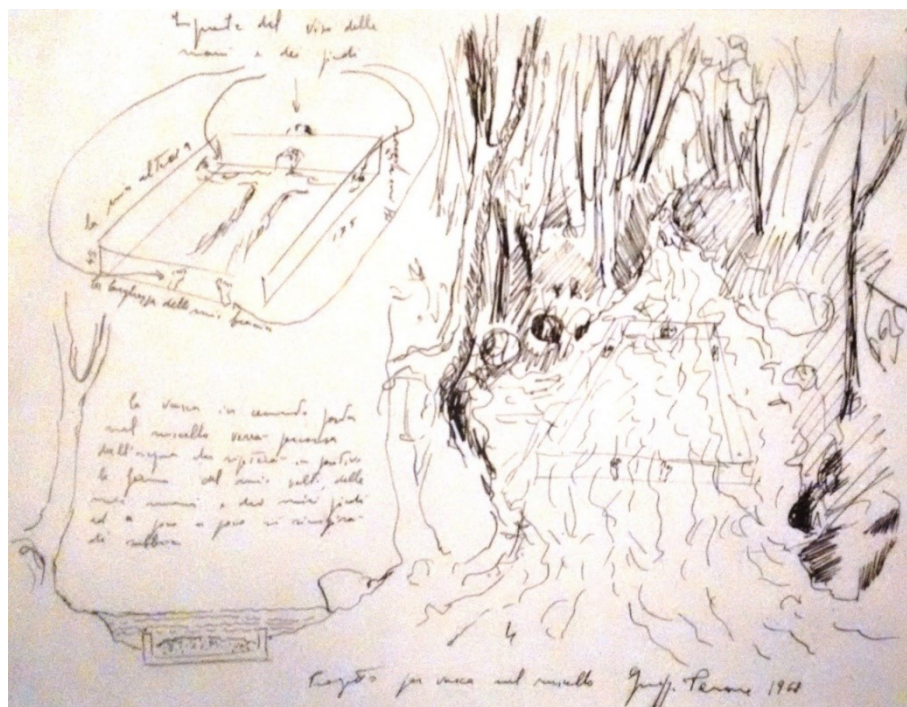 Impronte del viso delle
mani e dei piedi
la mia altezza
la larghezza delle mie braccia
135
la vasca in cemento posta
nel ruscello verrà percorsa
dall'acqua che ripeterà in positivo
le forme del mio volto, delle
mie mani e dei miei piedi
ed a poco a poco si riempirà
di sabbia
Progetto per vasca nel ruscello Giusepp. Penone 1968